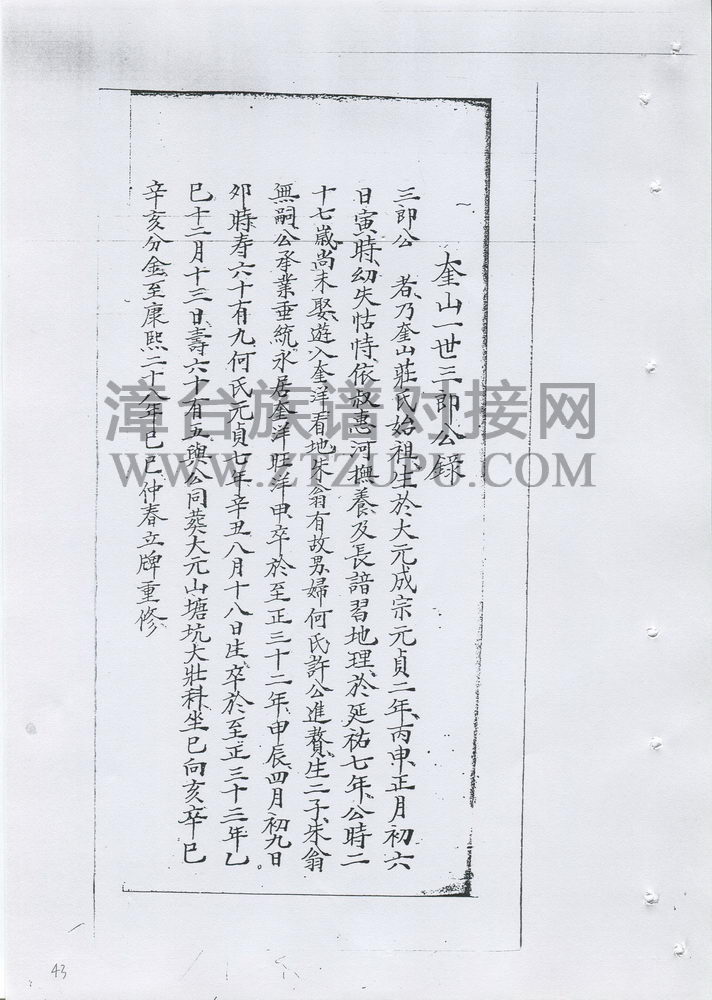 奎山一世三郎公錄
三郎公 者乃奎山莊氏始祖生於大元成宗元貞二年丙申正月初六
日寅時幼失怙恃依叔惠河撫養及長諳習地理於延祐七年公時二
十七歲尚未娶遊入奎洋看地朱翁有故男婦何氏許公進贅生二子朱翁
無嗣公承業垂統永居奎洋旺洋甲卒於至正三十二年甲辰四月初九日
卯時寿六十有九何氏元貞七年辛丑八月十八日生卒於至正三十三年乙
巳十二月十三日壽六十有五與公同葬大元山塘坑大壯科坐巳向亥辛巳
辛亥分金至康熙二十八年己巳仲春立牌重修
漳台族谱对接网
WWW.ZTZUPU.COM
43